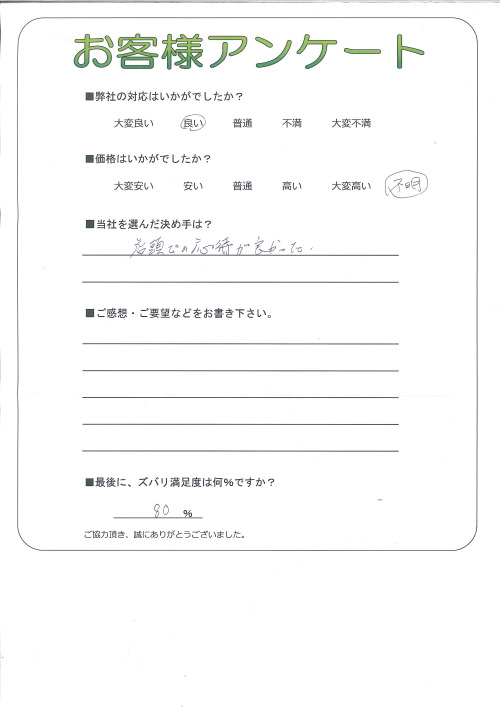 お客様アンケート
■弊社の対応はいかがでしたか？
大変良い 良い 普通 不満 大変不満
■価格はいかがでしたか？
大変安い 安い 普通 高い 大変高い 不明
■当社を選んだ決め手は？
店頭での応待が良かった。
■ご感想・ご要望などをお書き下さい。
■最後に、ズバリ満足度は何%ですか？
80 %
ご協力頂き、誠にありがとうございました。